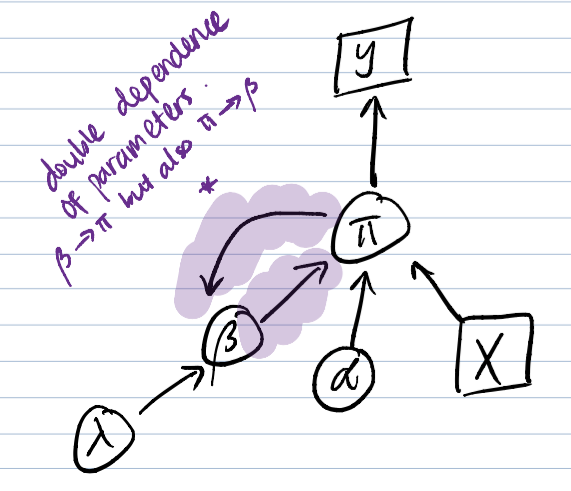 double dependence
of parameters.
β → π but also π → β
*
y
π
β
α
X
λ